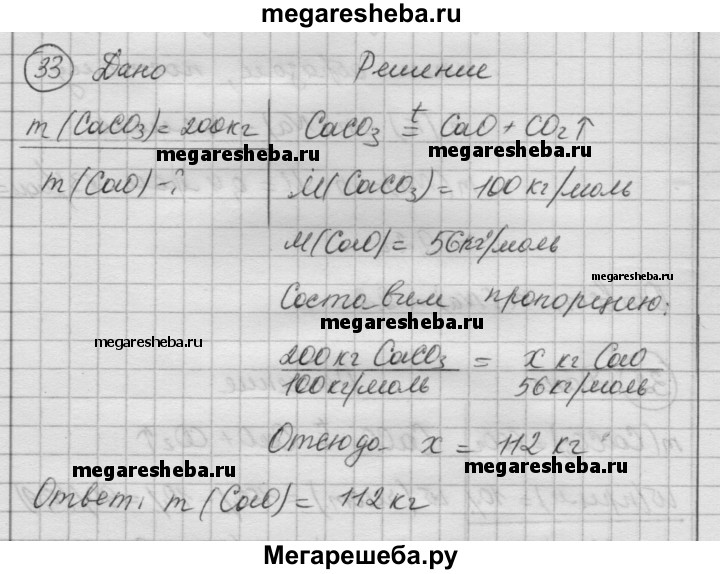 megaresheba.ru
33 Дано Решение
m(CaCO₃)=200кг CaCO₃ =ᵗ CaO + CO₂↑
megaresheba.ru megaresheba.ru
m(CaO)-? M(CaCO₃)=100кг/моль
M(CaO)=56кг/моль
megaresheba.ru
Составим пропорцию:
megaresheba.ru
megaresheba.ru
200кг CaCO₃ = x кг CaO
100кг/моль 56кг/моль
megaresheba.ru
Отсюда x = 112 кг
megaresheba.ru megaresheba.ru
Ответ: m(CaO)=112кг
Мегарешеба.ру